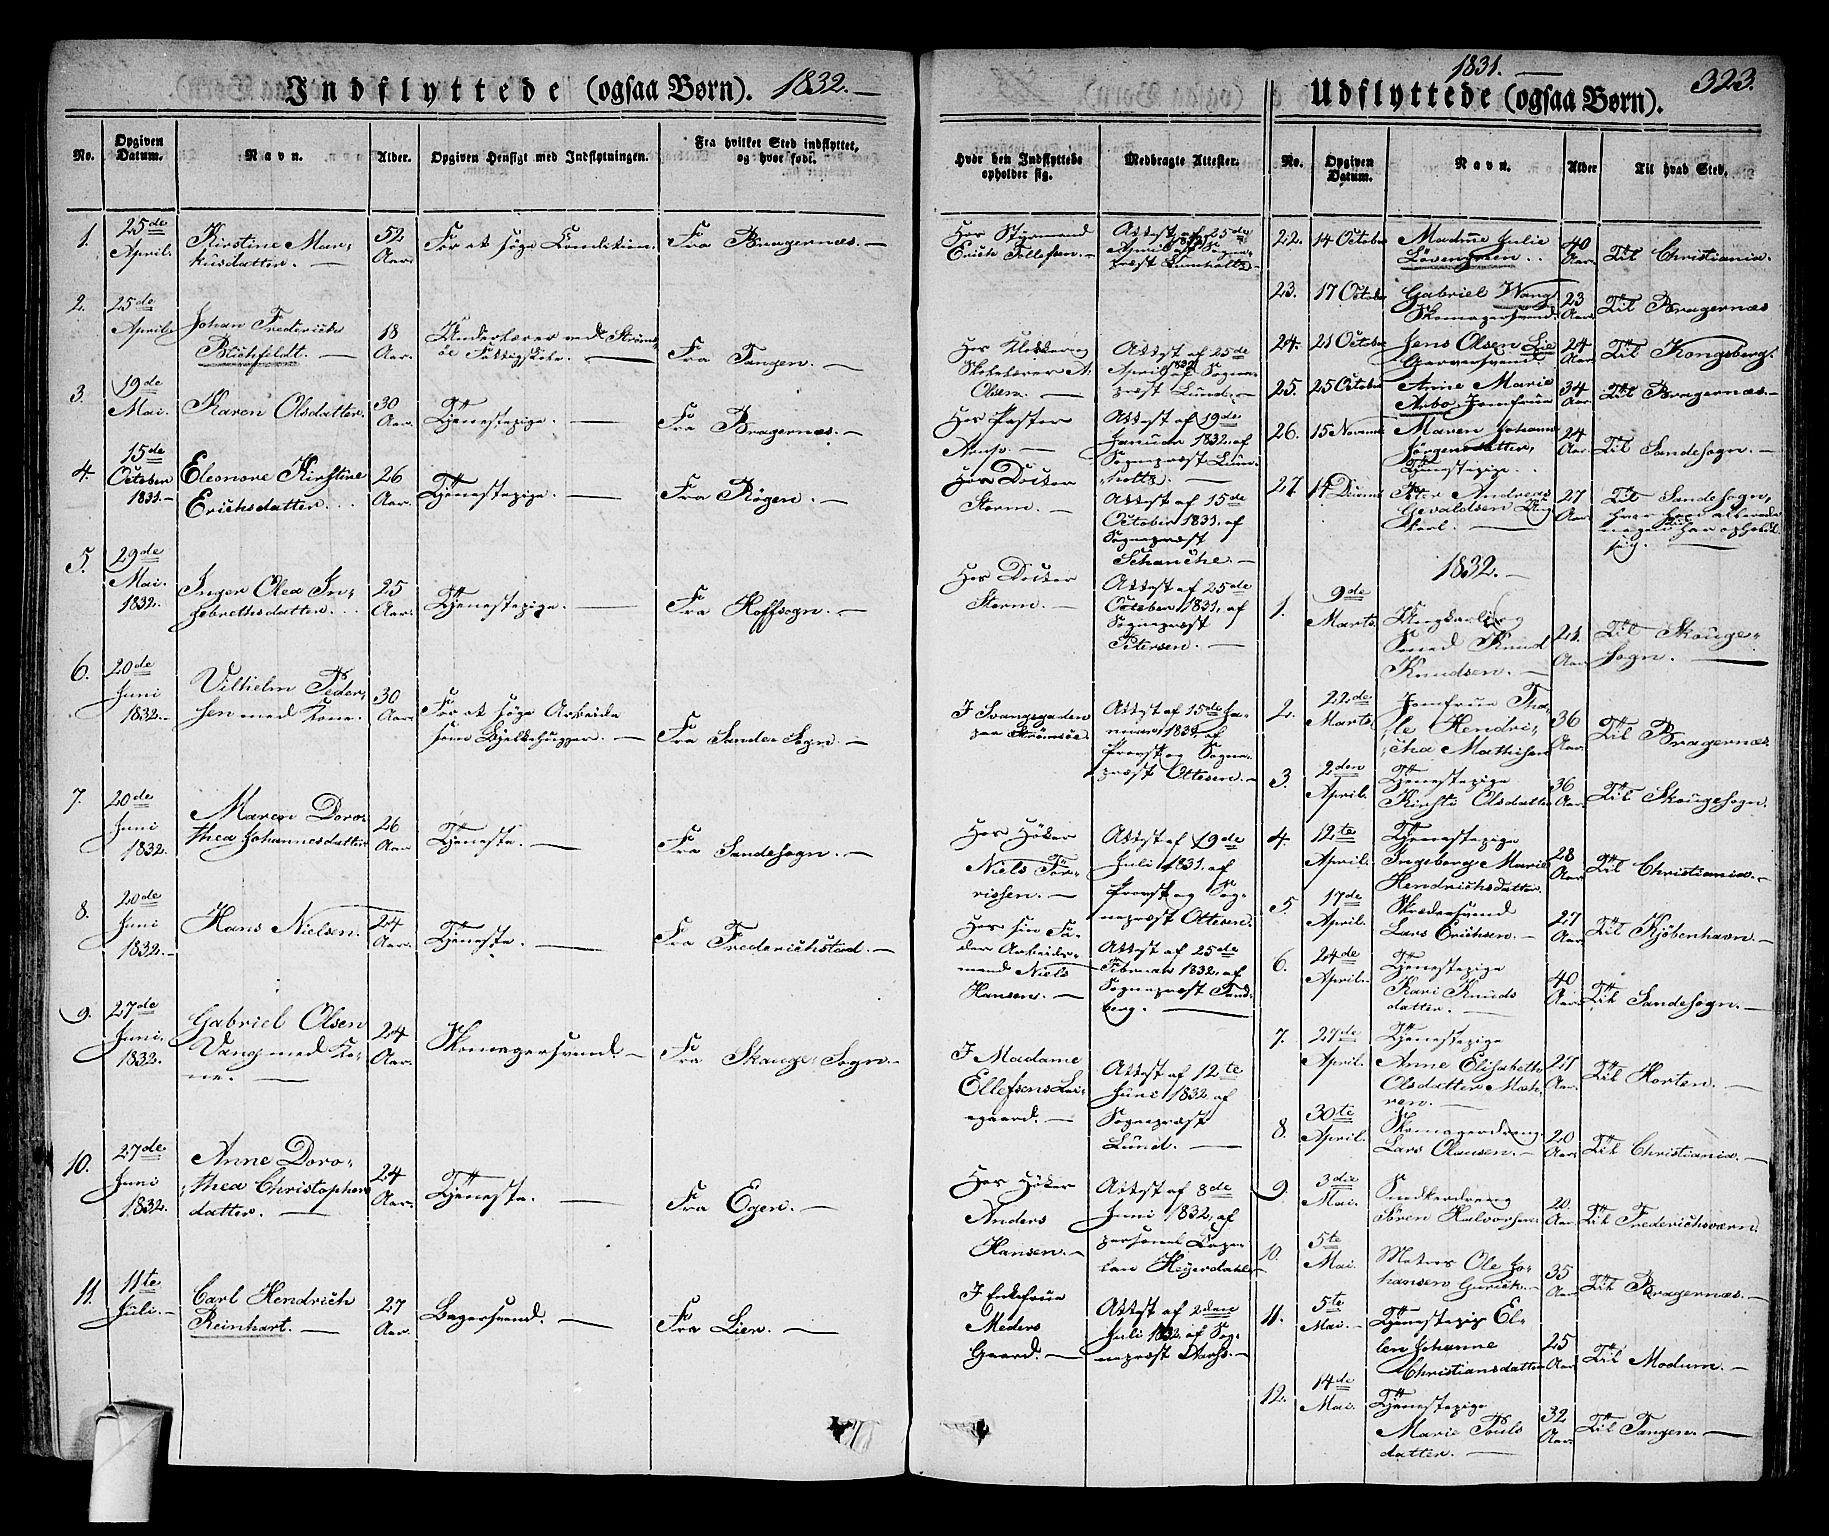 Indflyttede (ogsaa Børn). 1832. —
No.
Opgiven Datum.
Navn.
Alder.
Opgiven Hensigt med Indflytningen.
Fra hvilket Sted indflyttet, og hvor født.
Hvor den Indflyttede opholder sig.
Medbragte Attester.
1. 25de April. Kirstine Markusdatter. — 52 Aar. For at søge Condition. Fra Bragernæs. — Hos Styrmand Erich Tollefsen. — Attest af 25de April 1832 af Sognepræst Lumholtz —
2. 25de April. Johan Frederich Blichfeldt. — 18 Aar. Underlærer ved Strømsöe Fattigskole. — Fra Tangen. — Hos Klokker og Skolelærer A. Olsen. — Attest af 25de April 1832 af Sognepræst Lund. —
3. 19de Mai. Karen Olsdatter. 30 Aar. Tjenestepige. — Fra Bragernæs. — Hos Pastor Arup. — Attest af 19de Januar 1832 af Sognepræst Lumholtz. —
4. 15de October 1831. — Eleonore Kirstine Erichsdatter. 26 Aar. Tjenestepige. — Fra Røgen. — Hos Doctor Storm. — Attest af 15de October 1831, af Sognepræst Schanche. —
5. 29de Mai. 1832. Inger Olea Ingebrethsdatter. 25 Aar. Tjenestepige. — Fra Hoffsogn. — Hos Doctor Storm. — Attest af 25de October 1831, af Sognepræst Petersen. —
6. 20de Juni 1832. — Vilhelm Pedersen med Kone. 30 Aar. For at søge Arbeide som Bjelkehugger. — Fra Sande Sogn. — I Svangegaden paa Strømsöe. — Attest af 15de Januar 1832 af Provst og Sognepræst Ottesen. —
7. 20de Juni 1832. Maren Dorothea Johannesdatter 26 Aar Tjeneste. — Fra Sandesogn. — Hos Höker Niels Törrissen. — Attest af 19de Juli 1831. af Provst og Sognepræst Ottesen.
8. 20de Juni 1832. — Hans Nielsen. 24 Aar. Tjeneste. — Fra Frederichstad. — Hos sin Fader Arbeidsmand Niels Hansen. — Attest af 25de Februar 1832. af Sognepræst Tandberg. —
9. 27de Juni. 1832. Gabriel Olsen Vang med Kone. — 24 Aar. Skomagersvend. — Fra Skouge Sogn. — I Madame Ellefsens Leiegaard. — Attest af 12te Juni 1832 af Sognepræst Lund. —
10. 27de Juni 1832. Anne Dorothea Christophersdatter. — 24 Aar. Tjeneste. — Fra Egen. — Hos Höker Anders Hansen. — Attest af 8de Juni 1832, af personel Capellan Heyerdahl. —
11. 11te Juli. — Carl Hendrich Reinhart. — 27 Aar. Bagersvend. — Fra Lier. — I Enkefrue Meders Gaard. — Attest af 2den Juli 1832 af Sognepræst Aars. —
1831. —
323.
Udflyttede (ogsaa Børn).
No.
Opgiven Datum.
Navn.
Alder
Til hvad Sted.
22. 14 October Madme Julie Lövengreen. 40 Aar. Til Christiania.
23. 17 October Gabriel Wang Skomagersvend. 23 Aar. Til Bragernæs
24. 21 October Jens Olsen Lie Garversvend. 24 Aar Til Kongsberg.
25. 25 October Anne Marie Arbo, Jomfrue 34 Aar. Til Bragernæs. —
26. 15 Novemb. Maren Johanne Jörgensdatter, Tjenestepige. 24 Aar. Til Sandesogn. —
27. 14 Decemb. Peter Andreas Gevaldsen Ungkarl. — 27 Aar. Til Sandesogn, hvor han allerede har opholdt sig. —
1832. —
1. 9de Marts. Ungkarl og Smed Knud Knudsen. — 21. Aar Til Skougesogn. —
2. 22de Marts. Jomfrue Thale Hendricha Mathisen 36 Aar. Til Bragernæs
3. 2den April. Tjenestepige Kirsti Olsdatter 36 Aar. Til Skougesogn.
4. 12te April. Tjenestepige Ingeborg Marie Hendrichsdatter. 28 Aar. Til Christiania. —
5. 17de April. Skrædersvend Lars Erichsen. — 27 Aar. Til Kjöbenhavn. —
6. 24de April. Tjenestepige Kari Knudsdatter. — 40 Aar. Til Sandesogn. —
7. 27de April. Tjenestepige Anne Elisabeth Olsdatter Mohren. — 21 Aar. Til Horten. —
8. 30te April. Skomagerdreng Lars Olausen. — 20 Aar. Til Christiania. —
9. 3die Mai. Snedkerdreng Sören Halvorsen. 20. Aar. Til Frederichsværn.
10. 5te Mai. Matros Ole Johansen Gurich. — 35 Aar. Til Bragernæs. —
11. 5te Mai. — Tjenestepige Ellen Johanne Christiansdatter 25 Aar. Til Modum. —
12. 14de Mai. Tjenestepige Marie Poulsdatter. — 32 Aar. Til Tangen. —